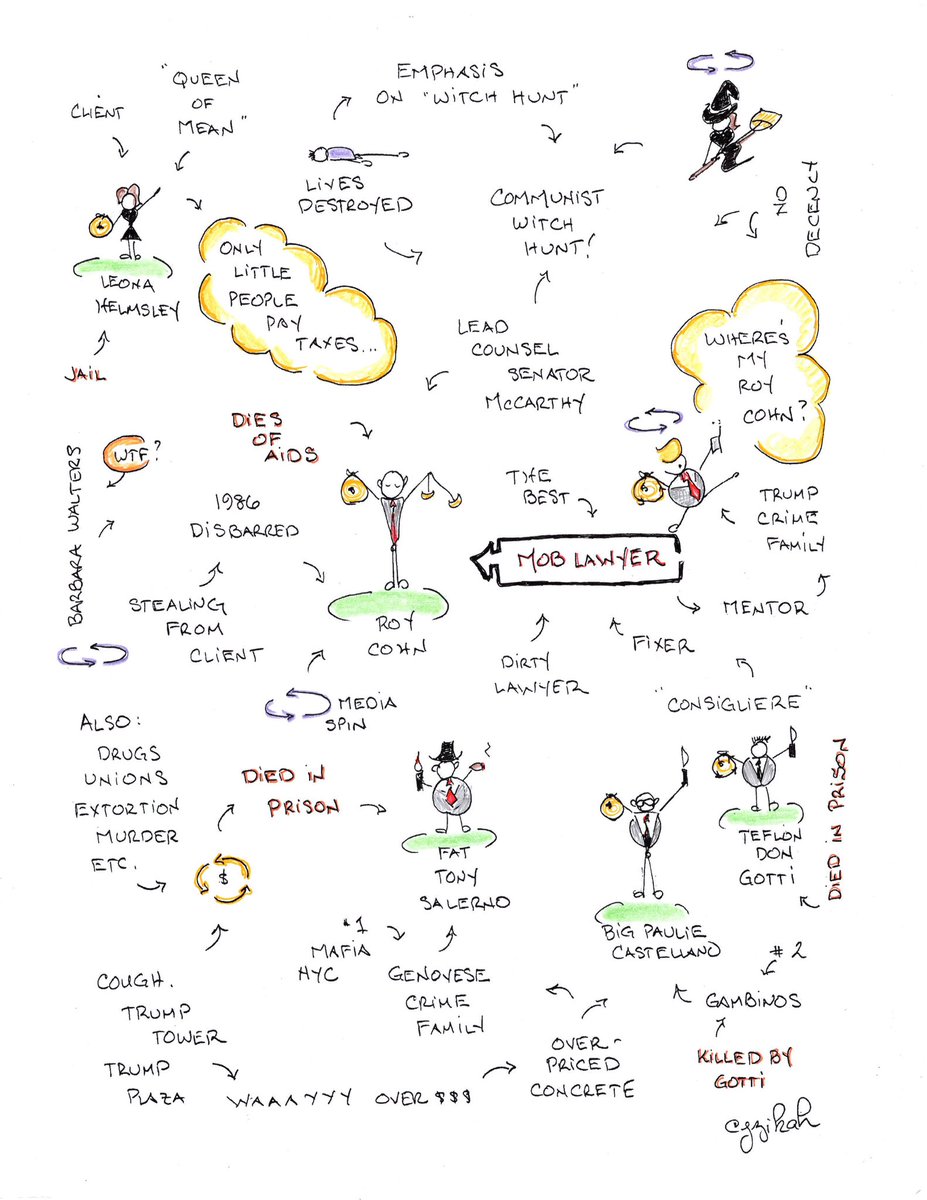 "QUEEN
OF
MEAN"
CLIENT
LEONA
HELMSLEY
JAIL
ONLY
LITTLE
PEOPLE
PAY
TAXES...
EMPHASIS
ON "WITCH HUNT"
LIVES
DESTROYED
COMMUNIST
WITCH
HUNT!
NO
DECENCY
LEAD
COUNSEL
SENATOR
McCARTHY
WHERE'S
MY
ROY
COHN?
DIES
OF
AIDS
BARBARA WALTERS
WTF?
1986
DISBARRED
STEALING
FROM
CLIENT
ROY
COHN
THE
BEST
MOB LAWYER
TRUMP
CRIME
FAMILY
MENTOR
FIXER
DIRTY
LAWYER
"CONSIGLIERE"
MEDIA
SPIN
ALSO:
DRUGS
UNIONS
EXTORTION
MURDER
ETC.
$
DIED IN
PRISON
FAT
TONY
SALERNO
#1
MAFIA
NYC
GENOVESE
CRIME
FAMILY
BIG PAULIE
CASTELLANO
TEFLON
DON
GOTTI
DIED IN PRISON
#2
GAMBINOS
KILLED BY
GOTTI
COUGH.
TRUMP
TOWER
TRUMP
PLAZA
WAAAYYYY OVER $$$
OVER-
PRICED
CONCRETE
cyzikah